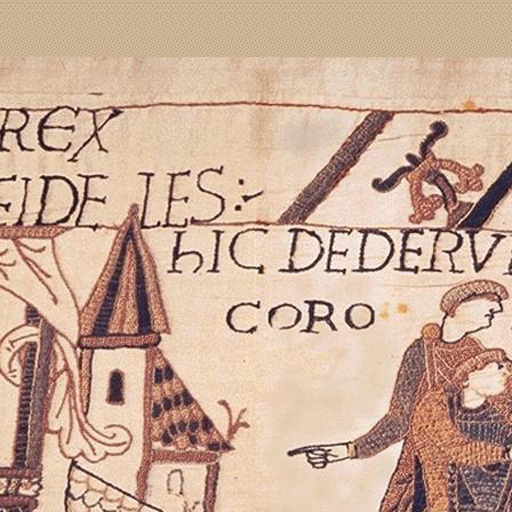 REX
EIDE LES:~
hIC DEDERV
CORO